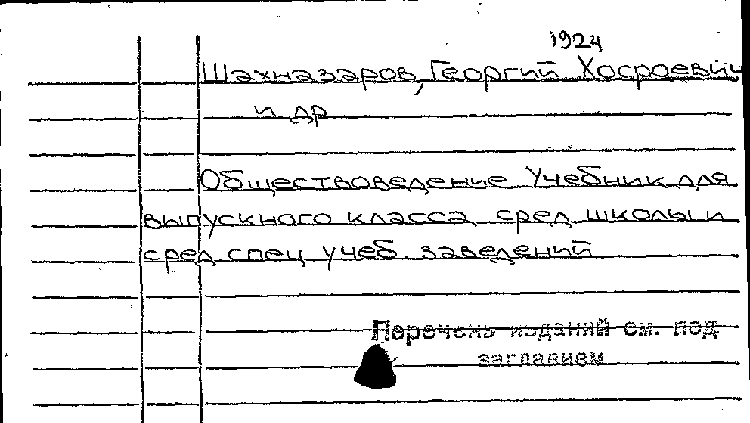 1924
Шахназаров, Георгий Хосроевич
и др
Обществоведение Учебник для
выпускного класса сред школы и
сред спец учеб. заведений
Перечень изданий см. под
заглавием